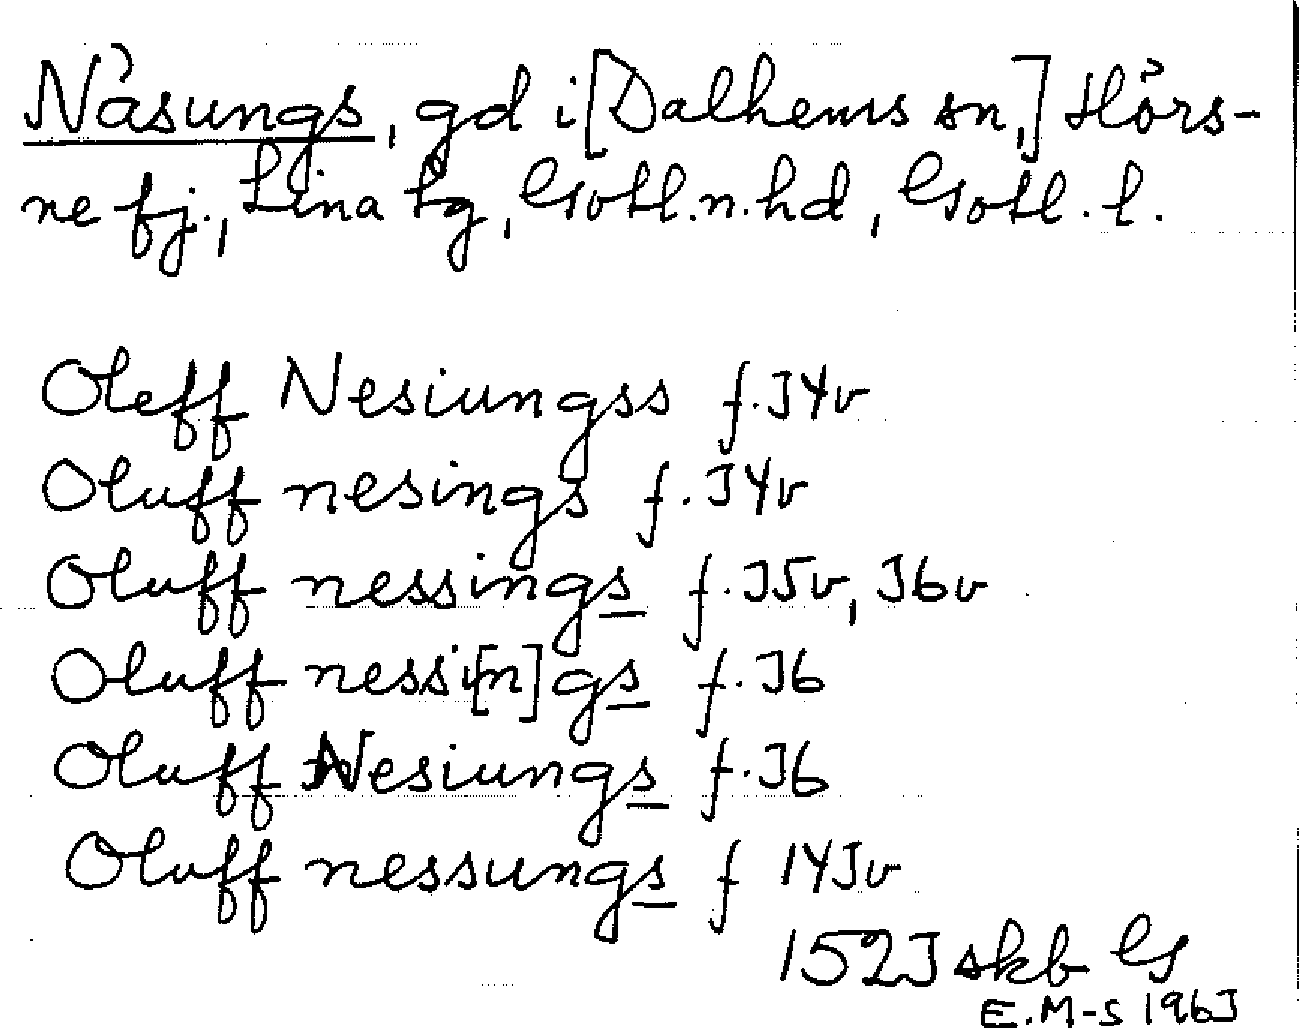 Näsungs, gd i [Dalhems sn,] Hörs-
ne fj., Lina tg, Gotl.n.hd, Gotl. l.
Oleff Nesiungss f.34v
Oluff nesings f.34v
Oluff nessings f.35v, 36v
Oluff nessi[n]gs f.36
Oluff Nesiungs f.36
Oluff nessungs f 143v
1523 skb G
E.M-S 1963